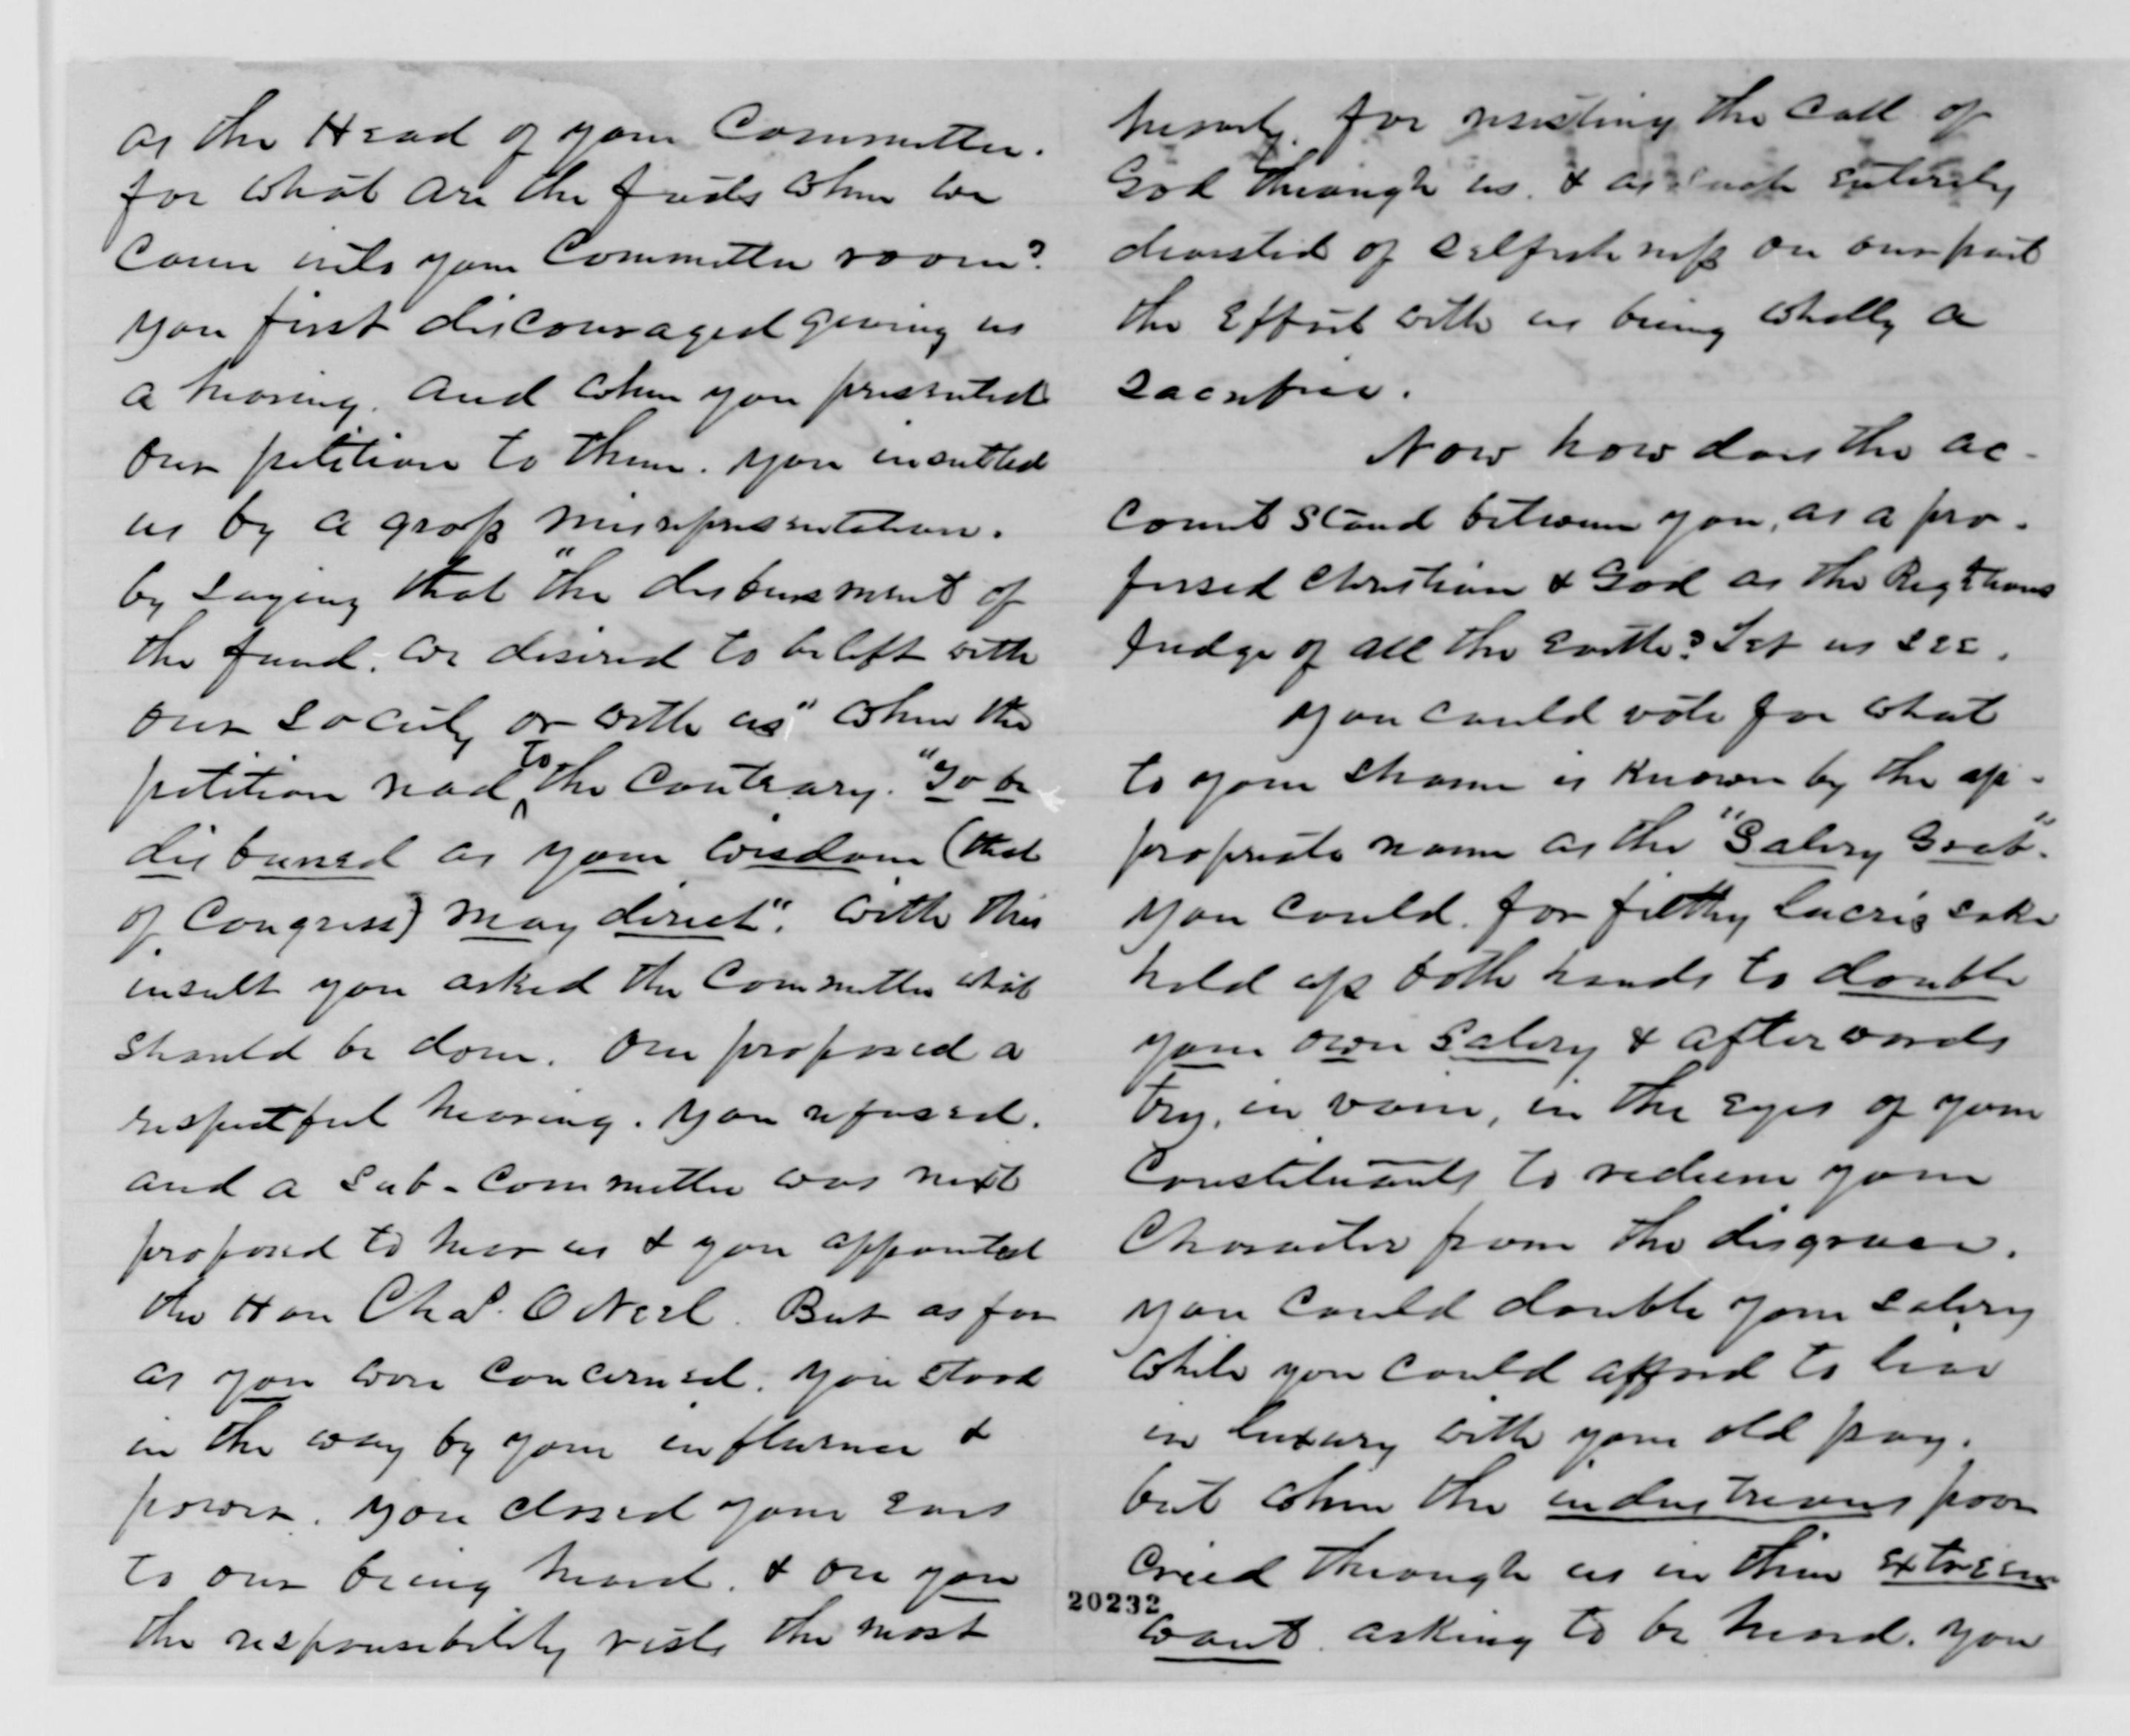 as the Head of your Committee.
for what are the facts when we
came into your Committee room?
you first discouraged giving us
a hearing. and when you presented
our petition to them. you insulted
us by a gross misrepresentation.
by saying that "the disbursment of
the fund. we desired to be left with
our Society or with us" when the
petition read to the contrary. "To be
disbursed as your wisdom (that
of Congress) may direct". with this
insult you asked the Committee what
should be done. One proposed a
respectful hearing. you refused.
and a sub-committee was next
proposed to hear us & you appointed
the Hon Chas. O Neil. But as far
as you were concerned. you stood
in the way by your influence &
power. you closed your ears
to our being heard. & on you
the responsibility rests the most
heavily for resisting the call of
God through us. & as such entirely
divested of selfishness on our part
the effort with us being wholly a
sacrifice.
Now how does the ac-
count stand between you, as a pro-
fessed Christian & God as the Righteous
Judge of all the Earth? Let us see.
you could vote for what
to your shame is known by the ap-
propriate name as the "Salery Grab".
you could. for filthy lucres sake
hold up both hands to double
your own salery & afterwards
try, in vain, in the eyes of your
Constituants to redeem your
Character from the disgrace.
you could double your salery
while you could afford to live
in luxury with your old pay.
but when the industrious poor
cried through us in their extreem
20232
want. asking to be heard. you